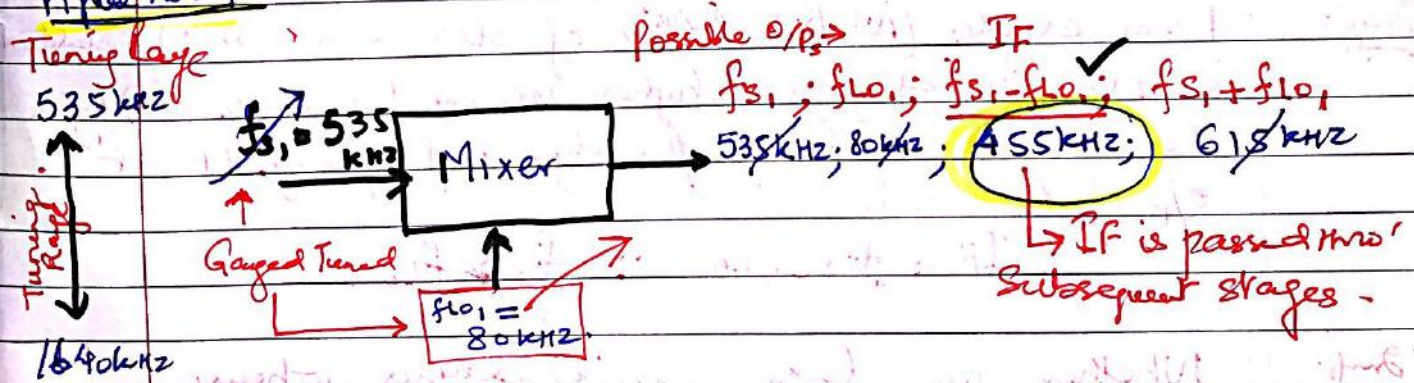 Tuning Range
535 kHz
Tuning Range
1640kHz
fs₁ = 535 kHz
Mixer
Gauged Tuned
fLO₁ = 80kHz
Possible O/Ps → IF ✓
fs₁ ; fLO₁ ; fs₁-fLO₁ ; fs₁+fLO₁
535kHz; 80kHz; 455kHz; 615kHz
↳ IF is passed thro'
Subsequent stages.